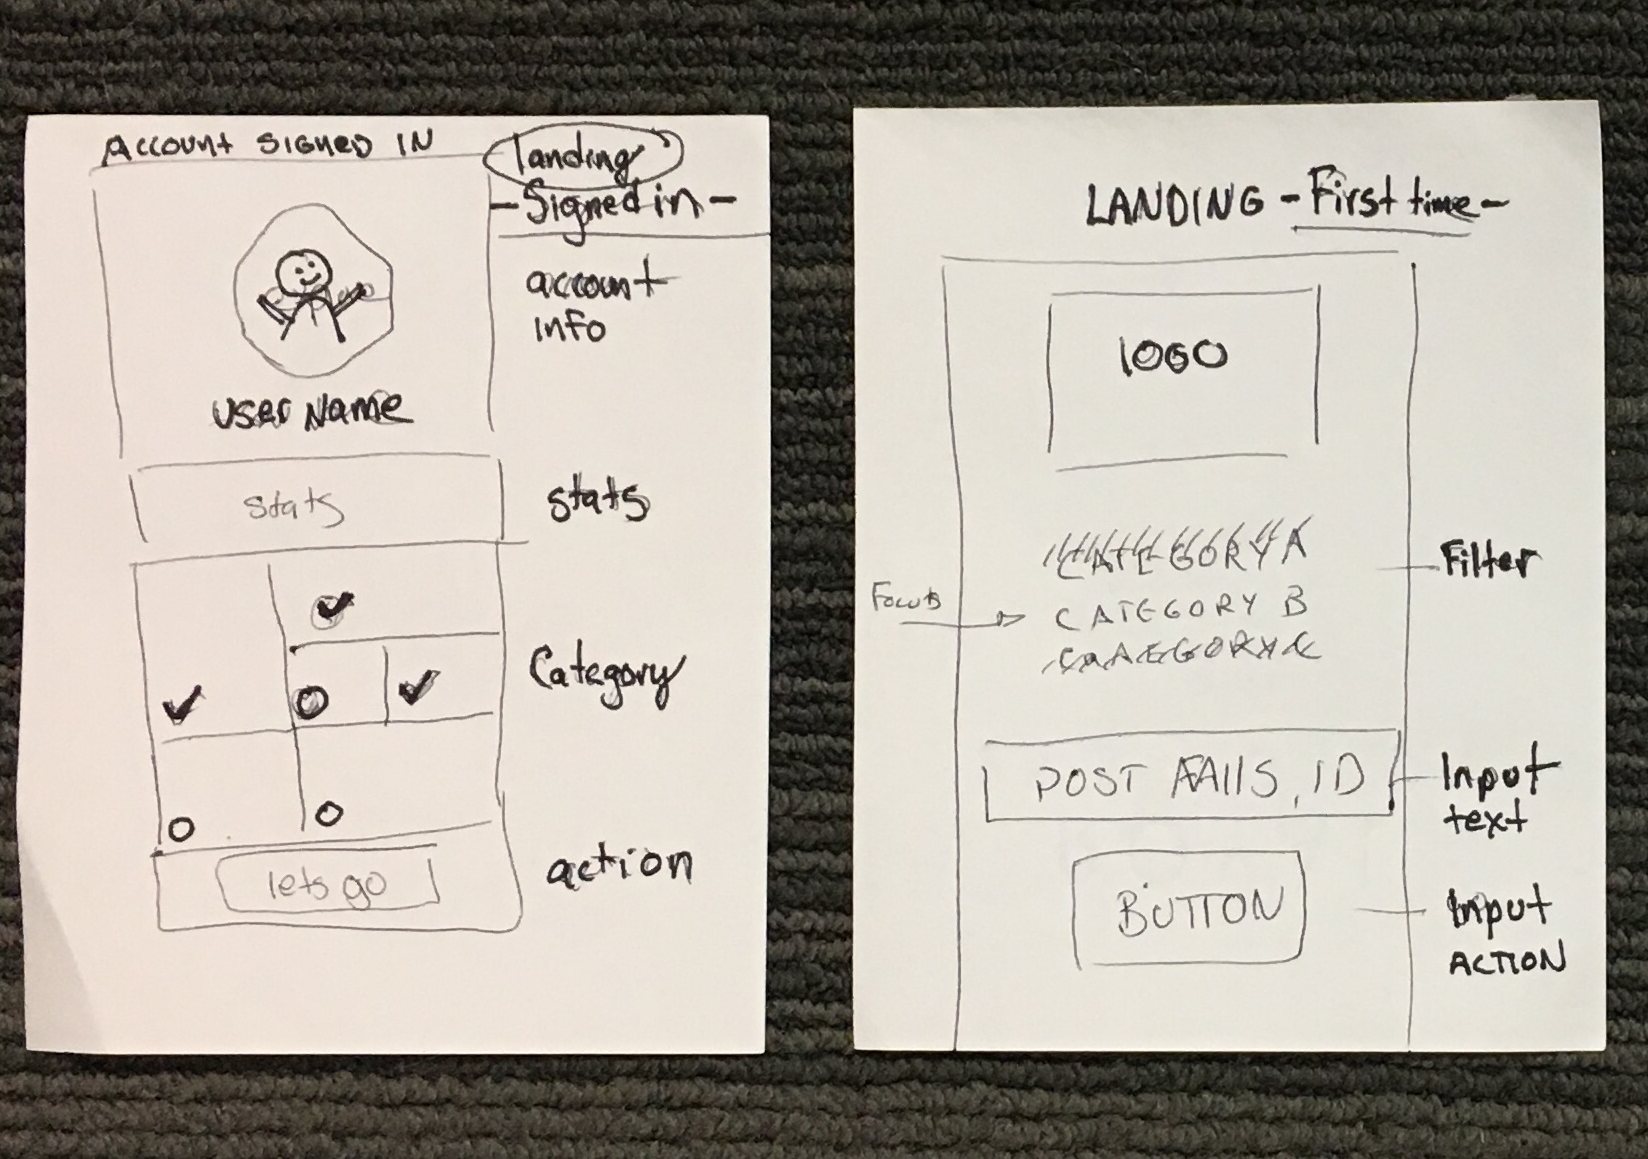 ACCOUNT SIGNED IN
landing
-Signed in-
account
info
user Name
stats
stats
Category
lets go
action
LANDING -First time-
LOGO
CATEGORY A
Filter
Focus
CATEGORY B
CATEGORY C
POST FAllS, ID
Input
text
BUTTON
Input
ACTION